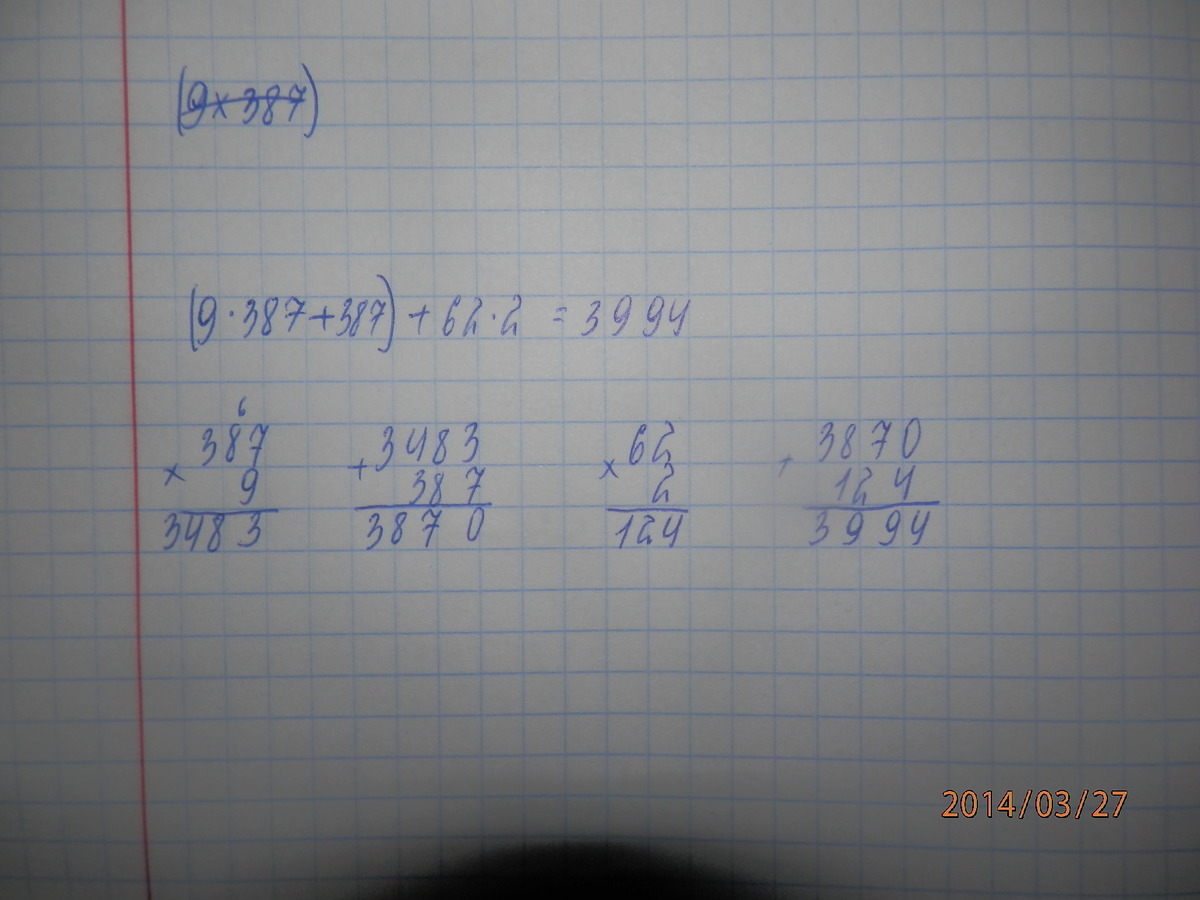 (9×387)
(9·387+387)+62·2=3994
6
387
×
9
3483
3483
+
387
3870
62
×
2
124
3870
+
124
3994
2014/03/27